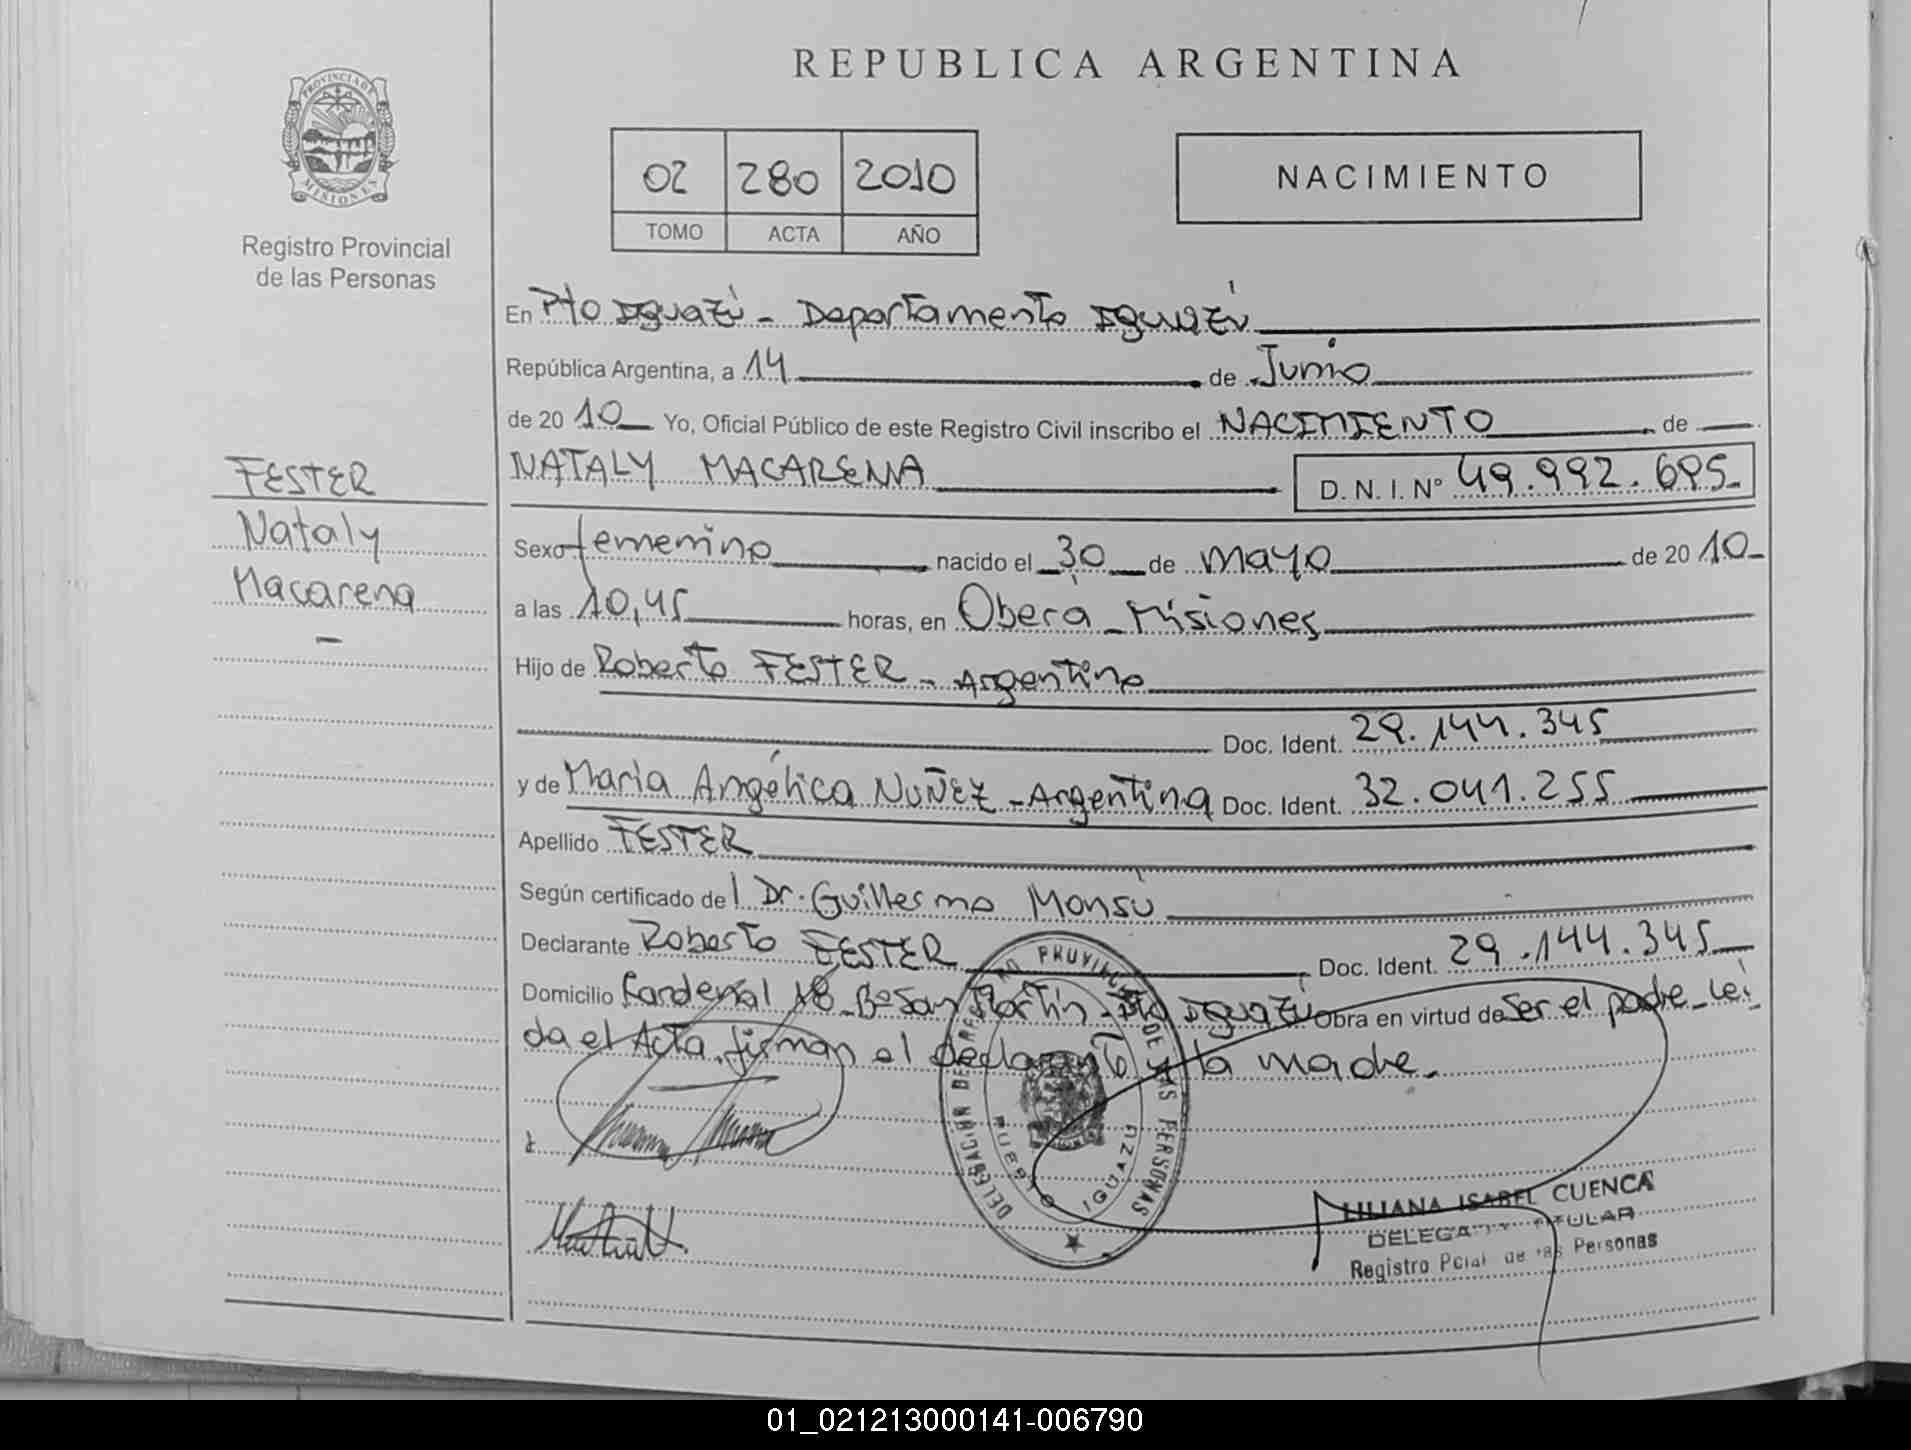 REPUBLICA ARGENTINA
PROVINCIA DE MISIONES
Registro Provincial
de las Personas
02 280 2010
TOMO ACTA AÑO
NACIMIENTO
En Pto Iguazú - Departamento Iguazú
República Argentina, a 14 de Junio
de 2010 Yo, Oficial Público de este Registro Civil inscribo el NACIMIENTO de
NATALY MACARENA D. N. I. Nº 49.992.695
FESTER
Nataly
Macarena
Sexo femenino nacido el 30 de mayo de 2010
a las 10,45 horas, en Oberá - Misiones
Hijo de Roberto FESTER - Argentino
Doc. Ident. 29.144.345
y de María Angélica NUÑEZ - Argentina Doc. Ident. 32.041.255
Apellido FESTER
Según certificado del Dr. Guillermo Monsú
Declarante Roberto FESTER Doc. Ident. 29.144.345
Domicilio Cardenal 18 - Bº San Martín - Pto Iguazú Obra en virtud de Ser el padre - Lei
da el Acta, firman el declarante y la madre.
DELEGACION PROVINCIAL DE LAS PERSONAS
PUERTO IGUAZU
LILIANA ISABEL CUENCA
DELEGADA TITULAR
Registro Pcial de las Personas
01_021213000141-006790